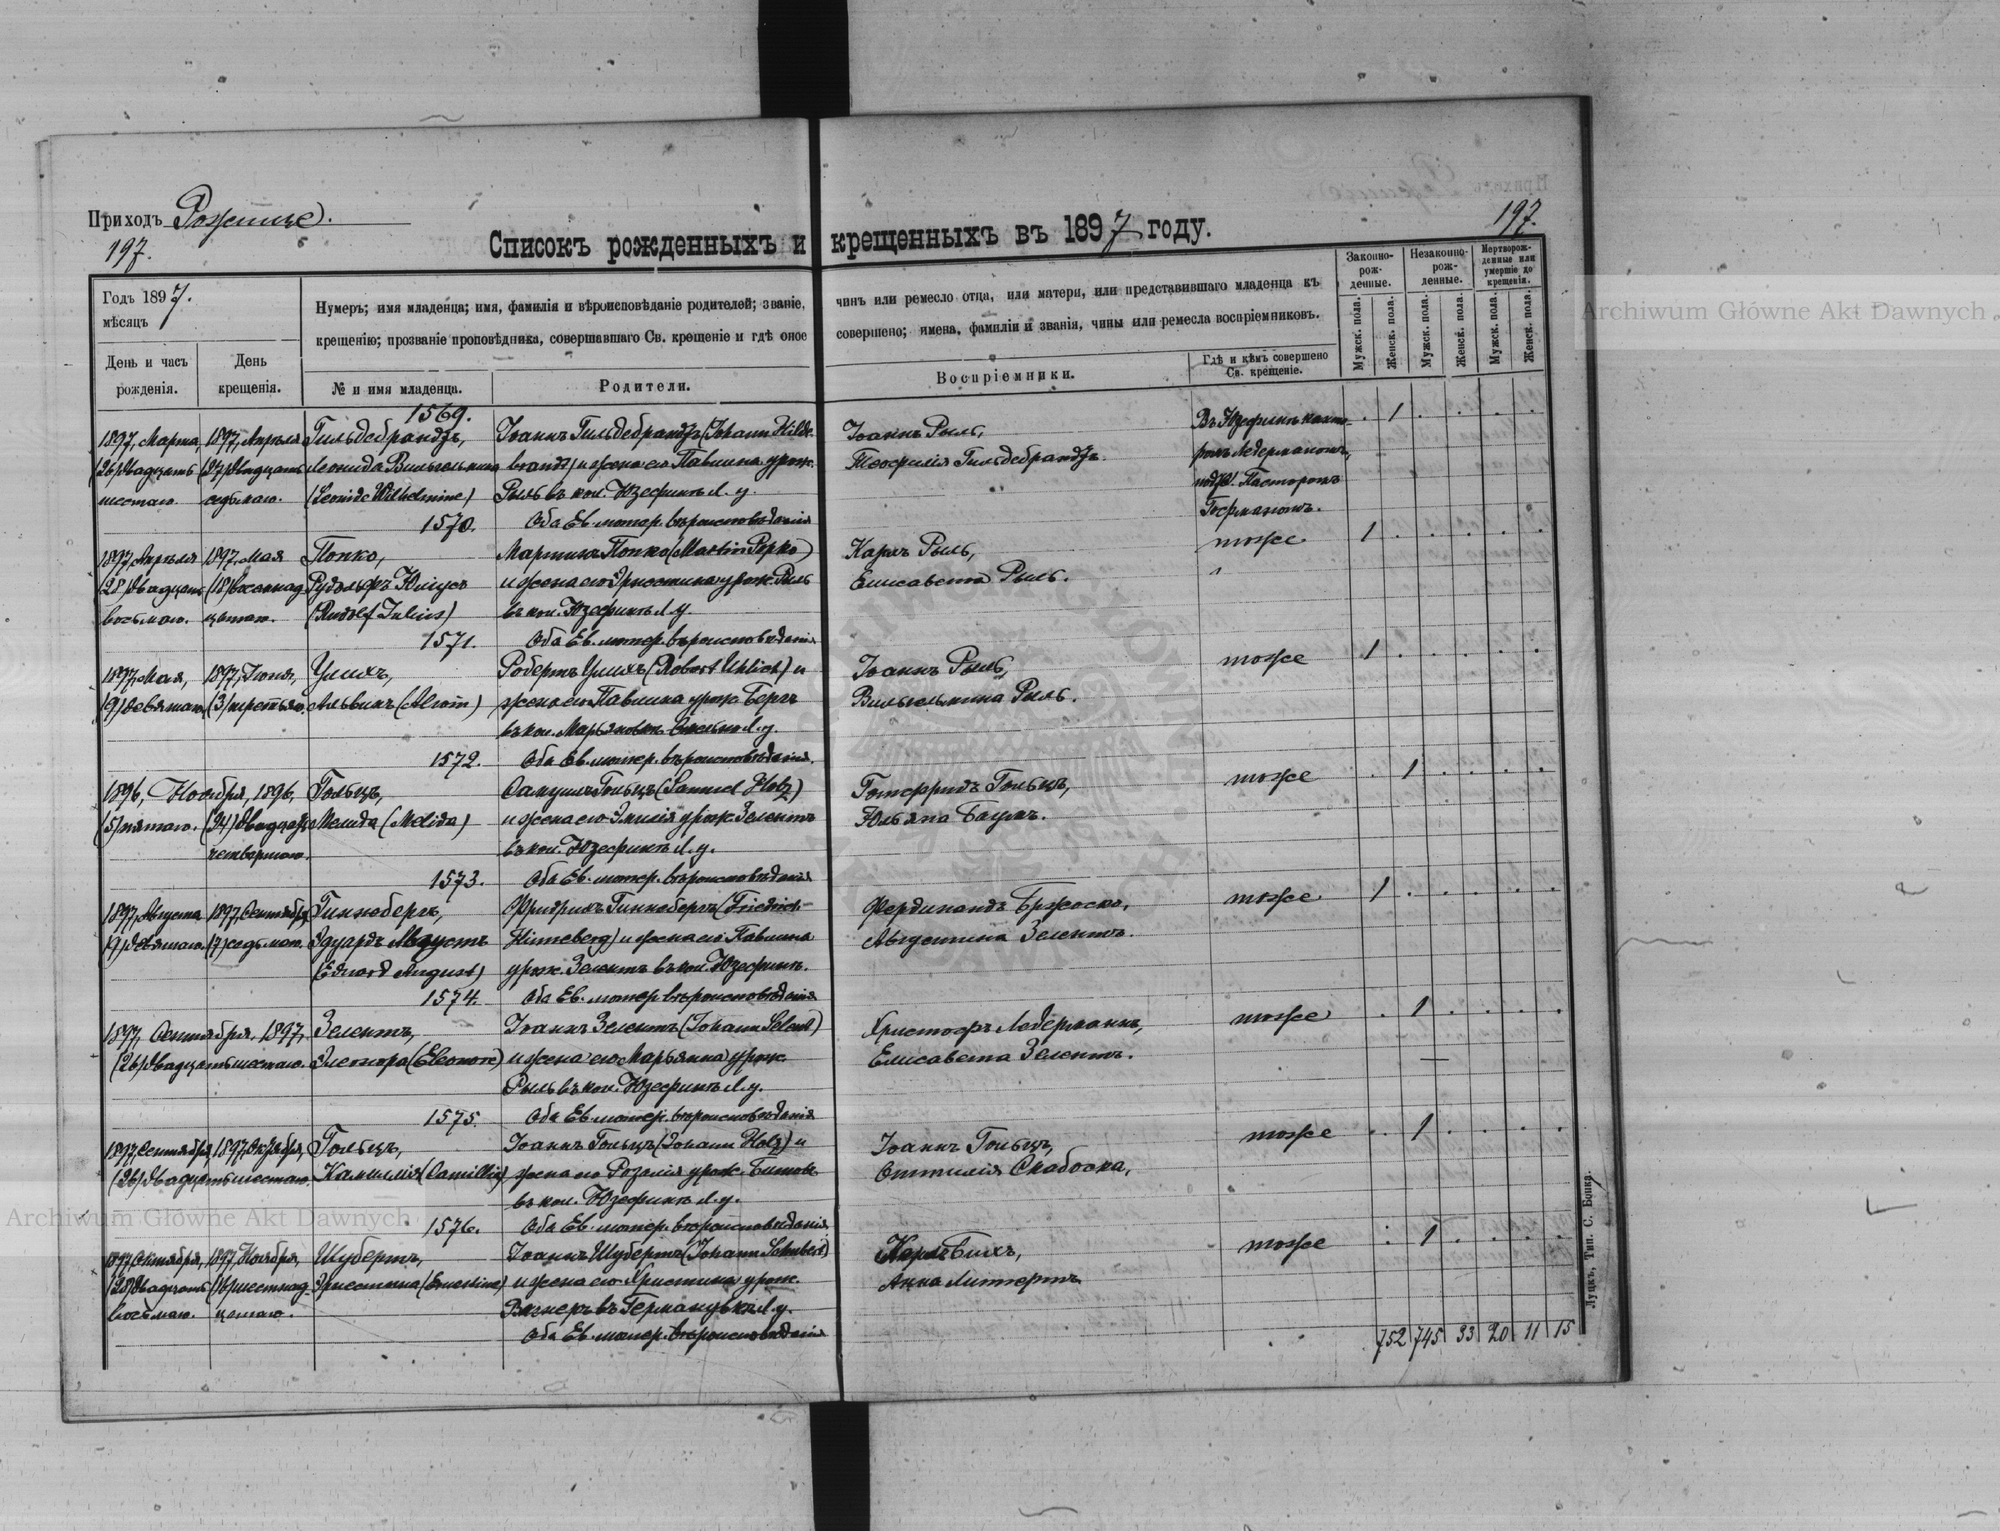 Приходъ Рожище.
197.
197.
Списокъ рожденныхъ и крещенныхъ въ 1897 году.
Годъ 1897.
мѣсяцъ
День и часъ рожденія.
День крещенія.
Нумеръ; имя младенца; имя, фамилія и вѣроисповѣданіе родителей; званіе, чинъ или ремесло отца, или матери, или представившаго младенца къ
крещенію; прозваніе проповѣдника, совершавшаго Св. крещеніе и гдѣ оное совершено; имена, фамиліи и званія, чины или ремесла воспріемниковъ.
№ и имя младенца.
Родители.
Воспріемники.
Гдѣ и кѣмъ совершено Св. крещеніе.
Законно-рож-денные.
Незаконно-рож-денные.
Мертворож-денные или умершіе до крещенія.
Мужск. пола.
Женск. пола.
Мужск. пола.
Женск. пола.
Мужск. пола.
Женск. пола.
1569.
1897, Марта, 1897, Апрѣля Гильдебрандъ, Іоаннъ Гильдебрандъ (Johann Hilde- Іоаннъ Рыль, Въ Юзефинѣ канто- . 1 . . . .
(26) двадцать (27) двадцать Леонида Вильгельмина brandt) и жена его Павлина урож. Теофилія Гильдебрандъ. ромъ Ледерманомъ,
шестаго. седьмаго. (Leonide Wilhelmine) Рыль въ кол. Юзефинѣ Л. у. Пасторомъ
1570. Оба Ев. лютер. вѣроисповѣданія Гофманомъ.
1897, Апрѣля 1897, Мая Попко, Мартинъ Попко (Martin Popko) Карлъ Рыль, тоже 1 . . . . .
28) двадцать (18) восемнад Рудольфъ Юліусъ и жена его Эрнестина урож. Рыль Елисавета Рыль.
восьмаго. цатаго. (Rudolf Julius) въ кол. Юзефинѣ Л. у.
1571. Оба Ев. лютер. вѣроисповѣданія
1897, Мая, 1897, Іюня, Улихъ, Робертъ Улихъ (Robert Uhlich) и Іоаннъ Рыль, тоже 1 . . . . .
(9) девятаго (3) третьяго. Альвинъ (Alwin) жена его Павлина урож. Бергъ Вильгельмина Рыль.
въ кол. Л. у.
1572. Оба Ев. лютер. вѣроисповѣданія.
1896, Ноября, 1896, Гольцъ, Самуилъ Гольцъ (Samuel Holz) Готфридъ Гольцъ, тоже . 1 . . . .
(5) пятаго. (24) двадцать Мелида (Melida) и жена его Эмилія урож. Зелентъ Юльяна Баумъ.
четвертаго. въ кол. Юзефинѣ Л. у.
1573. Оба Ев. лютер. вѣроисповѣданія
1897, Августа 1897, Сентября Гиннебергъ, Фридрихъ Гиннебергъ (Friedrich Фердинандъ Бржоско, тоже 1 . . . . .
(9) девятаго. (7) седьмаго. Эдуардъ Августъ Hinneberg) и жена его Павлина Августина Зелентъ.
(Eduard August) урож. Зелентъ въ кол. Юзефинѣ.
1574. Оба Ев. лютер. вѣроисповѣданія
1897, Сентября, 1897, Зелентъ, Іоаннъ Зелентъ (Johann Selent) Христофъ Ледерманнъ, тоже . 1 . . . .
(26) двадцать шестаго. Элеонора (Eleonore) и жена его Марьянна урож. Елисавета Зелентъ.
Рыль въ кол. Юзефинѣ Л. у.
1575. Оба Ев. лютер. вѣроисповѣданія
1897, Сентября, 1897, Октября, Гольцъ, Іоаннъ Гольцъ (Johann Holz) и Іоаннъ Гольцъ, тоже . 1 . . . .
(26) двадцать шестаго. Камилія (Camillia) жена его Розалія урож. Оттилія
въ кол. Юзефинѣ Л. у.
1576. Оба Ев. лютер. вѣроисповѣданія
1897, Октября, 1897, Ноября, Шубертъ, Іоаннъ Шубертъ (Johann Schubert) Карлъ тоже . 1 . . . .
(28) двадцать (16) шестнад Эрнестина (Ernestine) и жена его Христина урож. Анна
восьмаго. цатаго. въ Л. у.
Оба Ев. лютер. вѣроисповѣданія
752 745 33 20 11 15
Луцкъ, Тип. С. Бонка.
Archiwum Główne Akt Dawnych
Archiwum Główne Akt Dawnych